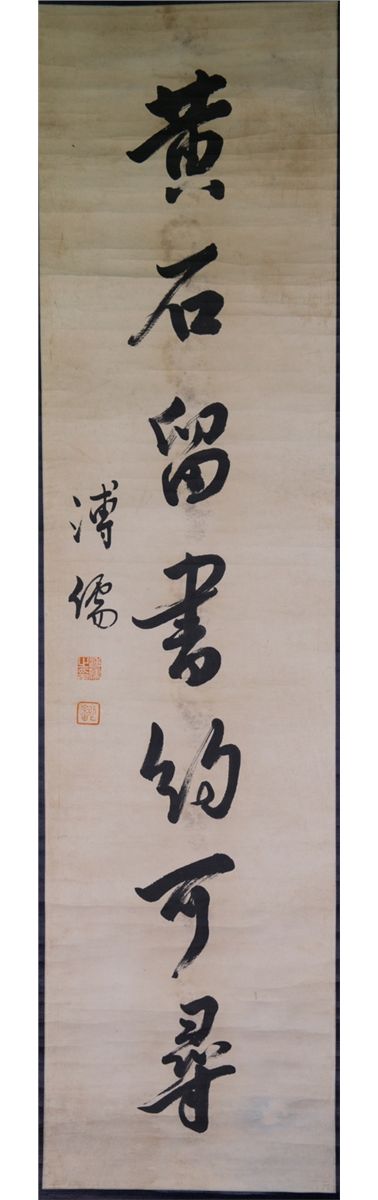 黄石留書約可尋
溥儒